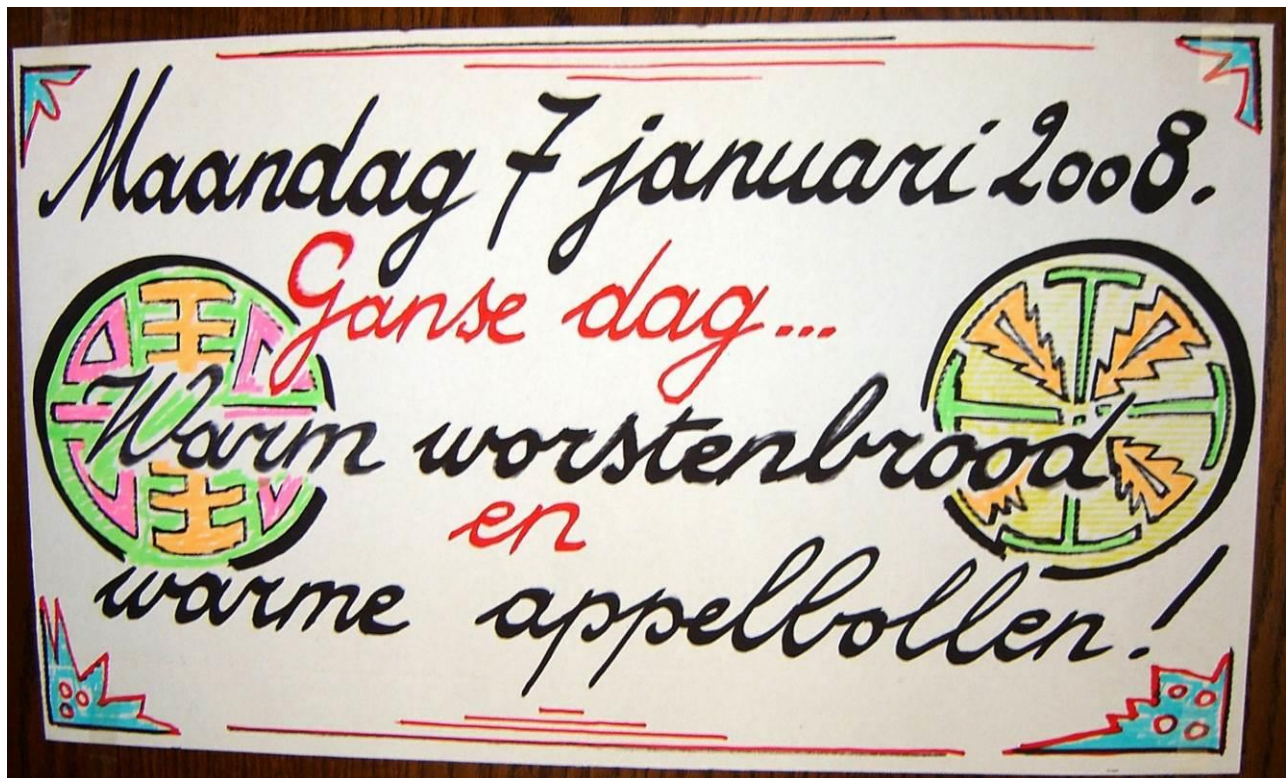 Maandag 7 januari 2008.
Ganse dag...
Warm worstenbrood
en
warme appelbollen!